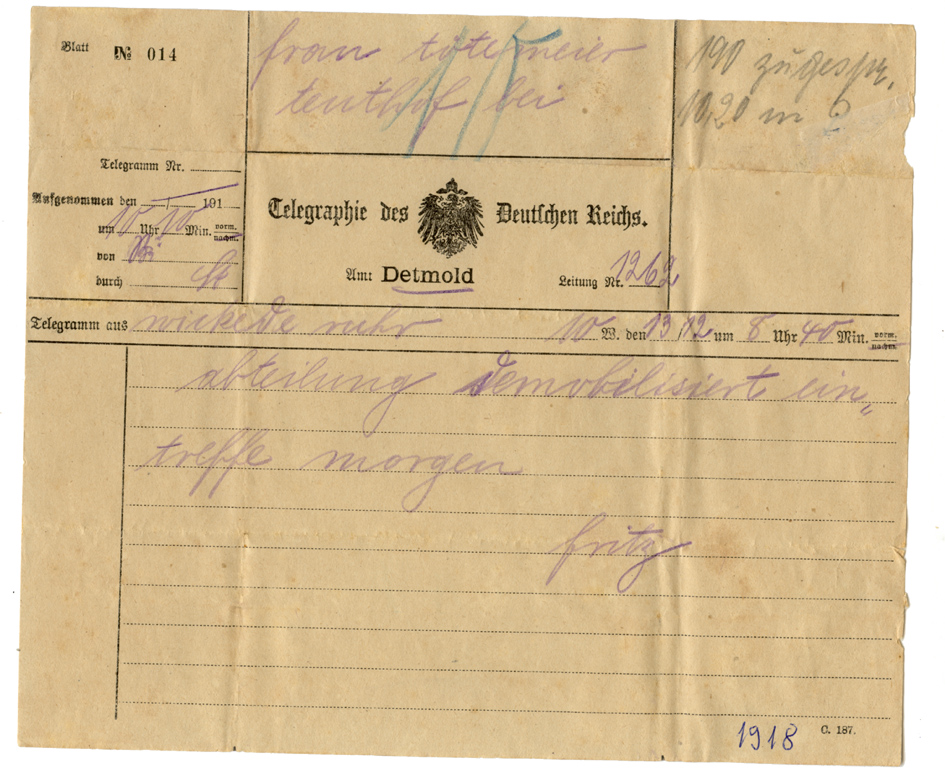 Blatt № 014
frau tötemeier
teuthof bei
190 zugespr.
10,20 m
Telegramm Nr.
Aufgenommen den 191
um 10 Uhr 10 Min. vorm. nachm.
von
durch
Telegraphie des Deutschen Reichs.
Amt Detmold
Leitung Nr. 1262
Telegramm aus wickede ruhr 10 W. den 13 12 um 8 Uhr 40 Min. vorm. nachm.
abteilung demobilisiert ein„
treffe morgen
fritz
1918
C. 187.